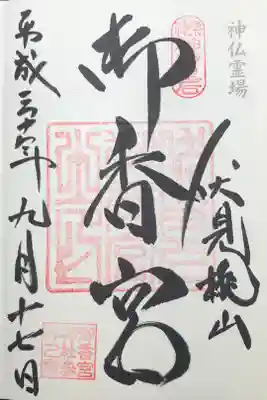 神仏霊場
伏見桃山
御香宮
平成三十年九月十七日